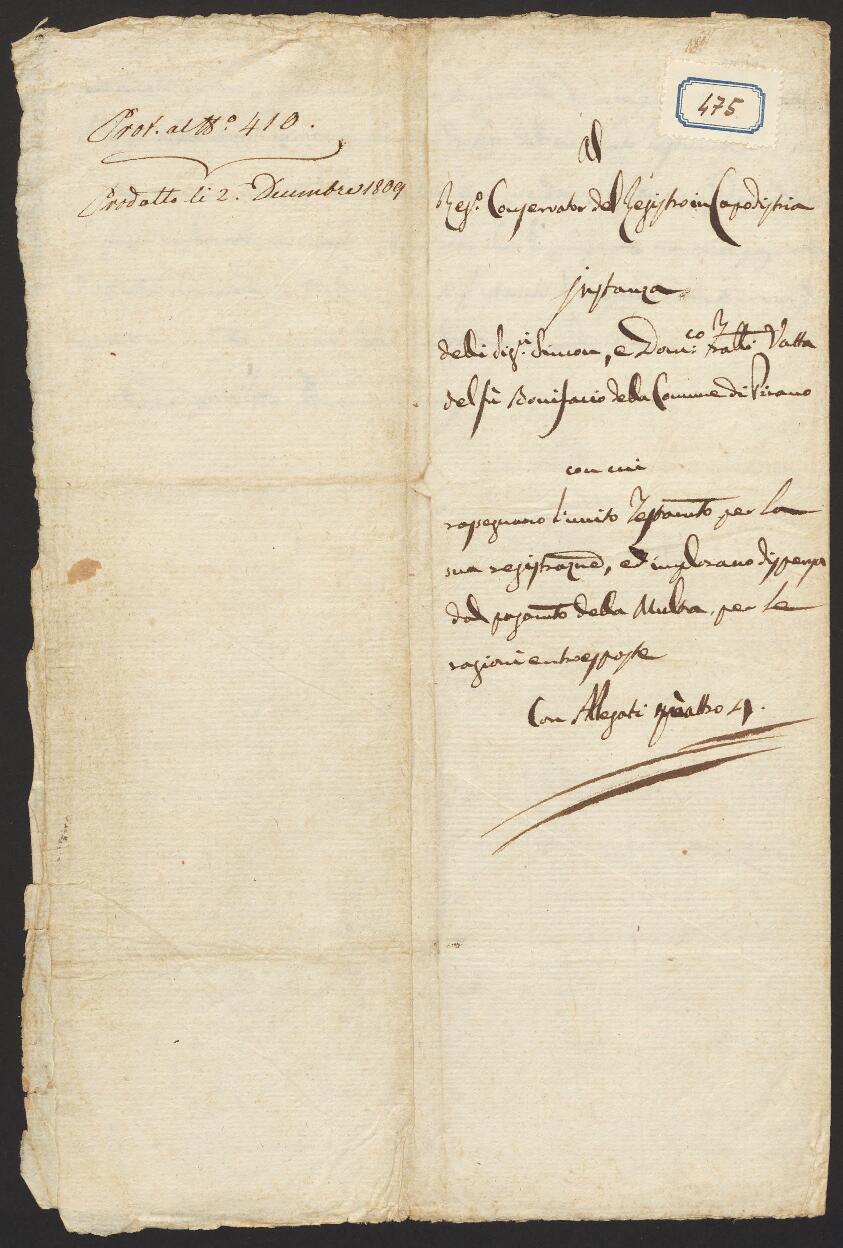 Prot. al N.º 410.
Prodotto li 2. Decembre 1809
475
Al
Reg.º Conservator del Registro in Capodistria
Instanza
delli Sig.ri Simon, e Dom.co Fratti Vatta
del fù Bonifacio della Comune di Pirano
con cui
rassegnano l'unito Testamto per la
sua registrazne, ed implorano dispensa
dal pagamto della Multa, per le
ragioni entroesposte
Con Allegati quattro 4.